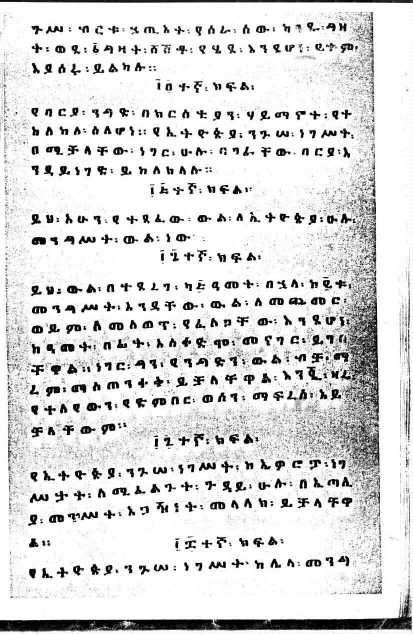 ጉሥ፡ ብርቱ፡ ኃጢአት፡ የሰራ፡ ሰው፡ ካንዱ፡ ግዛ
ት፡ ወደ፡ ፩ ግዛት፡ ሸሽቶ፡ የሄደ፡ እንደሆነ፡
እያሰሩ፡ ይልካሉ።
፲፬ተኛ፡ ክፍል፡
የባርያ፡ ንግድ፡ በክርስቲያን፡ ሃይማኖት፡ የተ
ከለከለ፡ ስለሆነ። የኢትዮጵያ፡ ንጉሠ፡ ነገሥት፡
በሚቻላቸው፡ ነገር፡ ሁሉ፡ ባገራቸው፡ ባርያ፡እ
ንዳይነገድ፡ ይከለክላሉ።
፲፭ተኛ፡ ክፍል።
ይህ፡ አሁን፡ የተጻፈው፡ ውል፡ ለኢትዮጵያ፡ ሁሉ፡
መንግሥት፡ ውል፡ ነው፡
፲፮ተኛ፡ ክፍል፡
ይህ፡ ውል፡ በተደረገ፡ ካ፭ዓመት፡ በኋላ፡ ከ፪ቱ፡
መንግሥት፡ አንዳቸው፡ ውል፡ ለመጨመር
ወይም፡ ለመለወጥ፡ የፈለጋቸው፡ እንደሆነ፡
ከዓመት፡ በፊት፡ አስቀድሞ፡ መናገር፡ ይገባ
ቸዋል። ነገር፡ ግን፡ የንግድን፡ ውል፡ ብቻ፡ ማ
ረም፡ ማስጠንቀቅ፡ ይቻላቸዋል፡ እንጂ፡ ዛሬ
የተለየውን፡ የድምበር፡ ወሰን፡ ማፍረስ፡ አይ
ቻላቸውም።
፲፯ተኛ፡ ክፍል፡
የኢትዮጵያ፡ ንጉሠ፡ ነገሥት፡ ከኤዎሮፓ፡ ነገ
ሥታት፡ ለሚፈልጉት፡ ጉዳይ፡ ሁሉ፡ በኢጣሊ
ያ፡ መንግሥት፡ አጋዥነት፡ መላላክ፡ ይቻላቸዋ
ል።
፲፰ተኛ፡ ክፍል፡
የኢትዮጵያ፡ ንጉሠ፡ ነገሥት፡ ከሌላ፡ መንግ